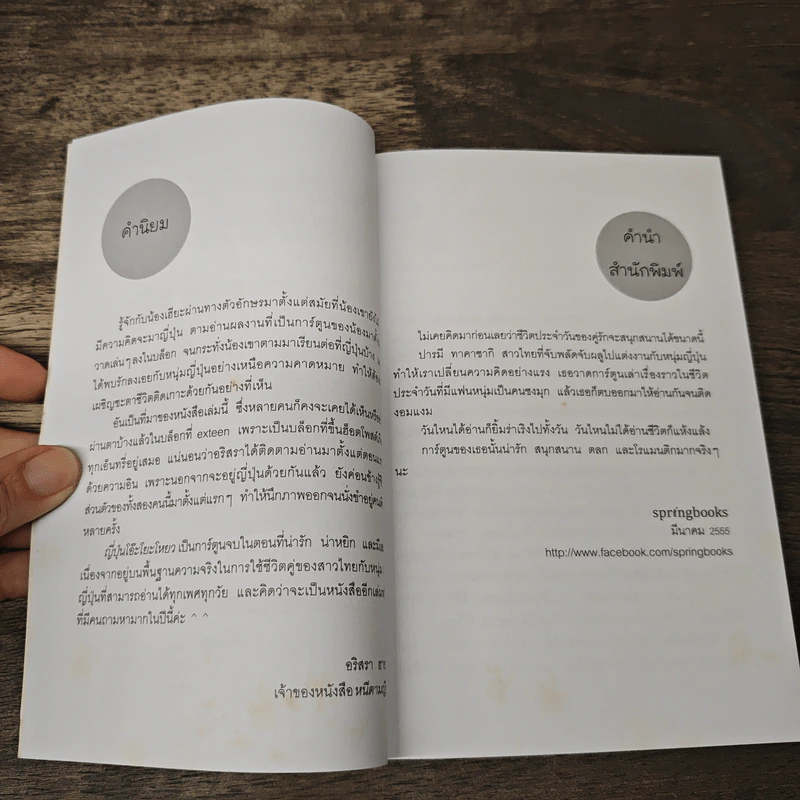 คำนิยม
รู้จักกับน้องเฮียะผ่านทางตัวอักษรมาตั้งแต่สมัยที่น้องเขายัง
มีความคิดจะมาญี่ปุ่น ตามอ่านผลงานที่เป็นการ์ตูนของน้องมาตั้ง
วาดเล่นๆลงในบล็อก จนกระทั่งน้องเขาตามมาเรียนต่อที่ญี่ปุ่นบ้าง
ได้พบรักลงเอยกับหนุ่มญี่ปุ่นอย่างเหนือความคาดหมาย ทำให้ต้อง
เผชิญชะตาชีวิตติดเกาะด้วยกันอย่างที่เห็น
อันเป็นที่มาของหนังสือเล่มนี้ ซึ่งหลายคนก็คงจะเคยได้เห็น
ผ่านตาบ้างแล้วในบล็อกที่ exteen เพราะเป็นบล็อกที่ขึ้นฮ็อตโพสต์
ทุกเอ็นทรี่อยู่เสมอ แน่นอนว่าอริสราได้ติดตามอ่านมาตั้งแต่ตอนแรก
ด้วยความอิน เพราะนอกจากจะอยู่ญี่ปุ่นด้วยกันแล้ว ยังค่อนข้าง
ส่วนตัวของทั้งสองคนนี้มาตั้งแต่แรกๆ ทำให้นึกภาพออกจนนั่งขำอยู่
หลายครั้ง
ญี่ปุ่นโอ๊ะโยะโหยว เป็นการ์ตูนจบในตอนที่น่ารัก น่าหยิก และ
เนื่องจากอยู่บนพื้นฐานความจริงในการใช้ชีวิตคู่ของสาวไทยกับหนุ่ม
ญี่ปุ่นที่สามารถอ่านได้ทุกเพศทุกวัย และคิดว่าจะเป็นหนังสืออีกเล่ม
ที่มีคนถามหามากในปีนี้ค่ะ ^ ^
อริสรา
เจ้าของหนังสือ หนีตาม
คำนำ
สำนักพิมพ์
ไม่เคยคิดมาก่อนเลยว่าชีวิตประจำวันของคู่รักจะสนุกสนานได้ขนาดนี้
ปารมี ทาคาซากิ สาวไทยที่จับพลัดจับผลูไปแต่งงานกับหนุ่มญี่ปุ่น
ทำให้เราเปลี่ยนความคิดอย่างแรง เธอวาดการ์ตูนเล่าเรื่องราวในชีวิต
ประจำวันที่มีแฟนหนุ่มเป็นคนชงมุก แล้วเธอก็ตบออกมาให้อ่านกันจนติด
งอมแงม
วันไหนได้อ่านก็ยิ้มร่าเริงไปทั้งวัน วันไหนไม่ได้อ่านชีวิตก็แห้งแล้ง
การ์ตูนของเธอนั้นน่ารัก สนุกสนาน ตลก และโรแมนติกมากจริงๆ
นะ
springbooks
มีนาคม 2555
http://www.facebook.com/springbooks